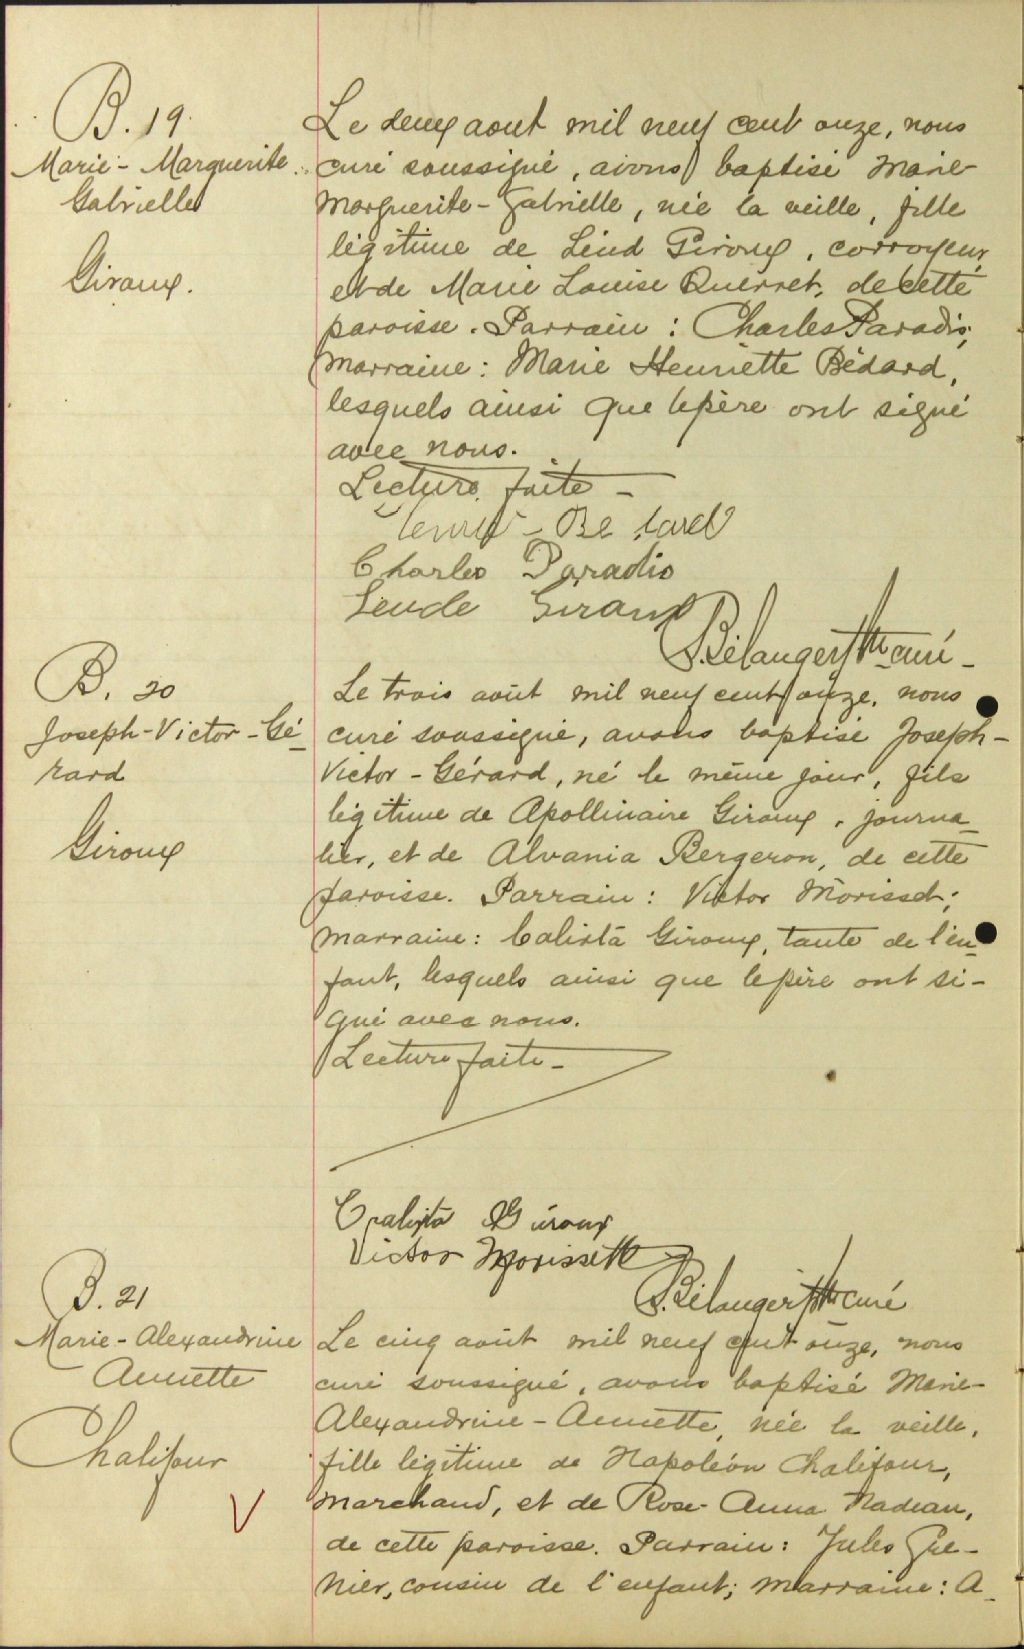 B. 19
Marie - Marguerite
Gabrielle
Giroux.
Le deux aout mil neuf cent onze, nous
curé soussigné, avons baptisé Marie-
Marguerite - Gabrielle, née la veille, fille
légitime de Léud Giroux, corroyeur,
et de Marie Louise Querret, de cette
paroisse. Parrain : Charles Paradis;
marraine : Marie Henriette Bédard,
lesquels ainsi que le père ont signé
avec nous.
Lecture faite -
Bedard
Charles Paradis
Leude Giroux
Bélanger Ptre curé -
B. 20
Joseph - Victor - Gé-
rard
Giroux
Le trois août mil neuf cent onze, nous
curé soussigné, avons baptisé Joseph-
Victor - Gérard, né le même jour, fils
légitime de Apollinaire Giroux, journa-
lier, et de Alvania Bergeron, de cette
paroisse. Parrain : Victor Morisset;
marraine : Calixta Giroux, tante de l'en-
fant, lesquels ainsi que le père ont si-
gné avec nous.
Lecture faite -
Calixta Giroux
Victor Morissette
Bélanger Ptre curé
B. 21
Marie - Alexandrine
Annette
Chalifour
V
Le cinq août mil neuf cent onze, nous
curé soussigné, avons baptisé Marie-
Alexandrine - Annette, née la veille,
fille légitime de Napoléon Chalifour,
marchand, et de Rose-Anna Nadeau,
de cette paroisse. Parrain : Jules Gre-
nier, cousin de l'enfant; marraine : A-